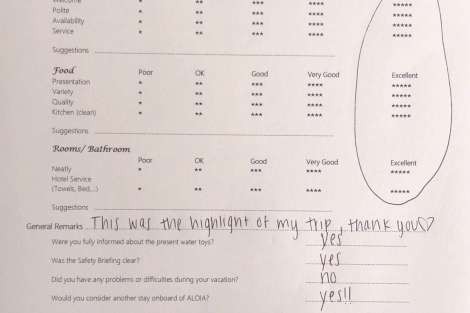 Welcome * ** *** **** *****
Polite * ** *** **** *****
Availability * ** *** **** *****
Service * ** *** **** *****
Suggestions
Food Poor OK Good Very Good Excellent
Presentation * ** *** **** *****
Variety * ** *** **** *****
Quality * ** *** **** *****
Kitchen (clean) * ** *** **** *****
Suggestions
Rooms/ Bathroom
Poor OK Good Very Good Excellent
Neatly * ** *** **** *****
Hotel Service
(Towels, Bed,...) * ** *** **** *****
Suggestions
General Remarks This was the highlight of my trip, thank you!♡
Were you fully informed about the present water toys? yes
Was the Safety Briefing clear? yes
Did you have any problems or difficulties during your vacation? no
Would you consider another stay onboard of ALOIA? yes!!